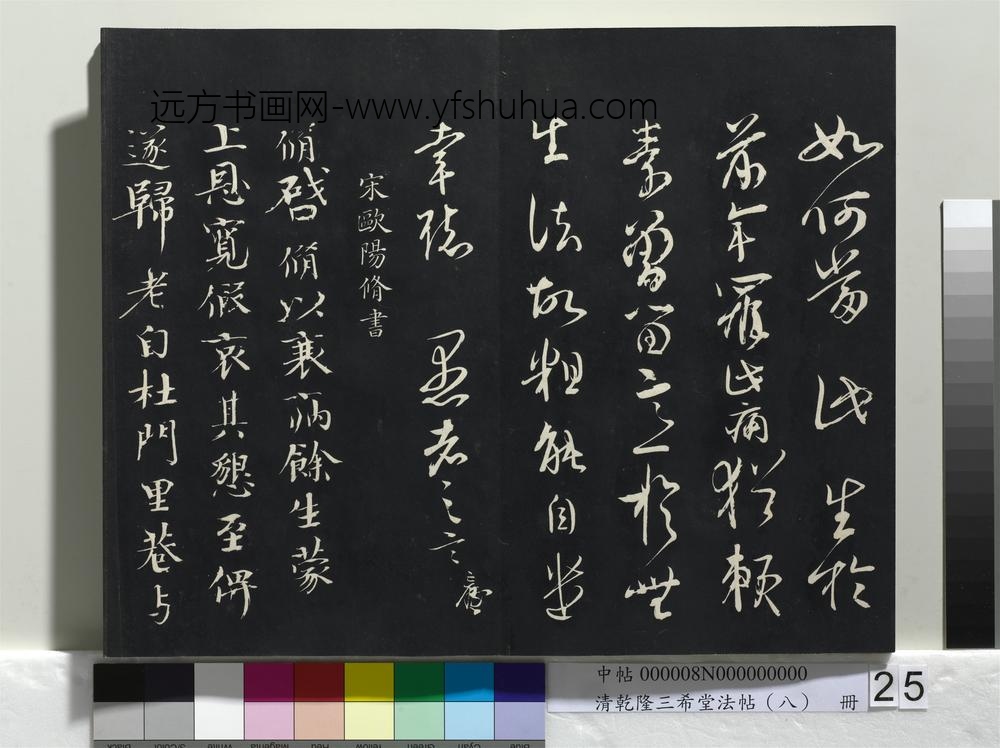 远方书画网-www.yfshuhua.com
如何當此 生於
前年罹此痛猶賴
素曾留意於無
生法故粗能自遣
幸聽 愚者之言
宋歐陽脩書
脩啓脩以衰病餘生蒙
上恩寬假哀其懇至俾
遂歸老自杜門里巷与
中帖 000008N000000000
清乾隆三希堂法帖（八） 冊
25
Black
3/Color
White
Magenta
Red
Yellow
Green
Cyan
Blue